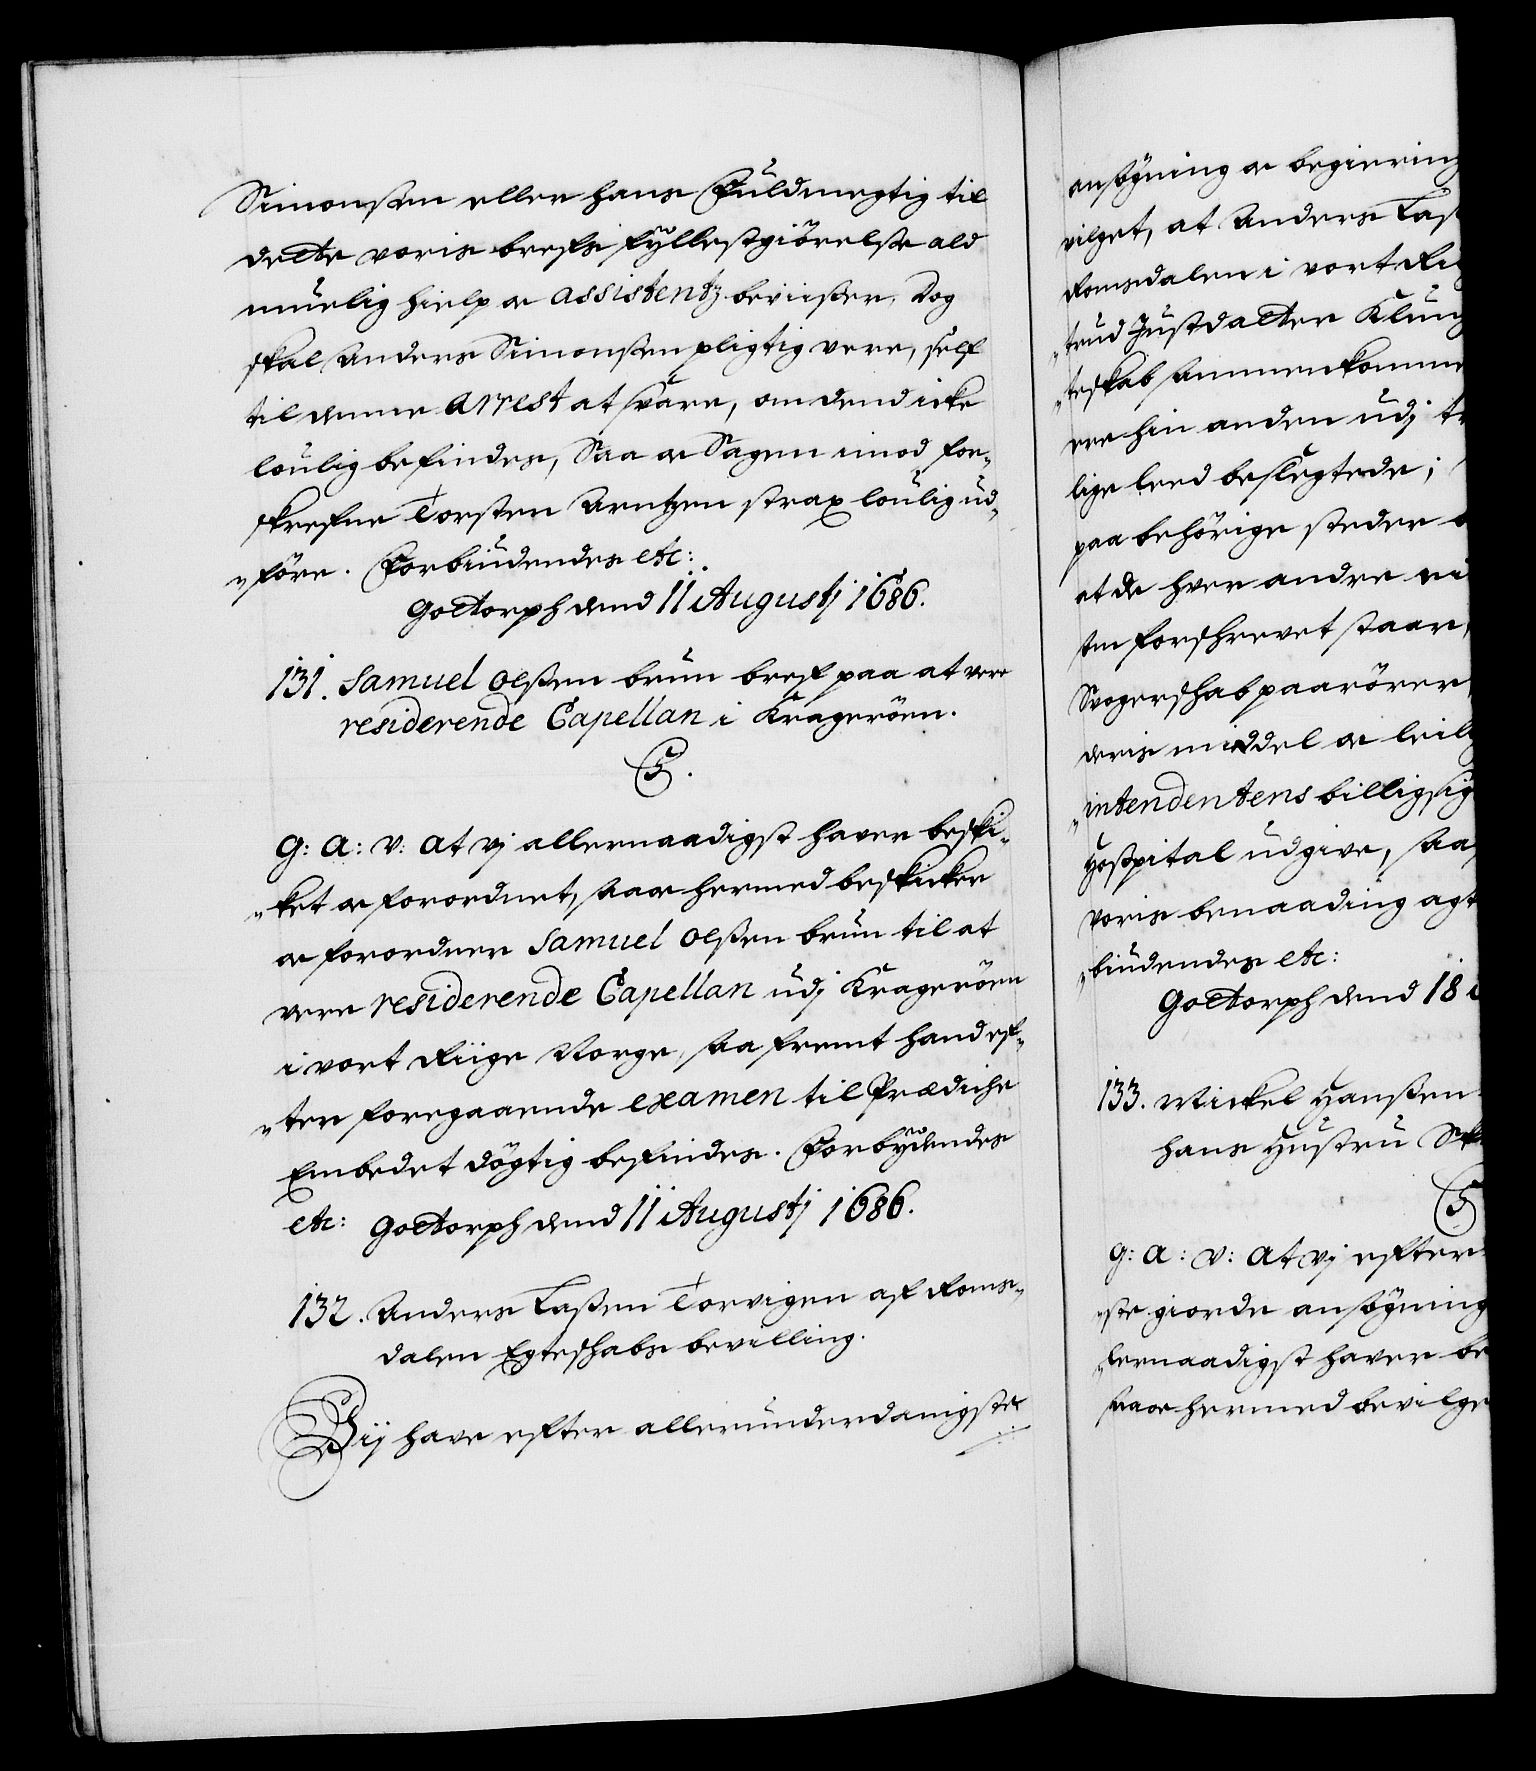 Simonssen eller hans Fuldmegtig til
dette voris brefs fyllestgiörelse ald
muelig hielp oc assistentz beviisser, Dog
skal Anders Simonssen pligtig vere, self
til denne arrest at svare, om dend icke
loulig befindes, Saa oc Sagen imod for„
skrefne Torsten Arntzen strax loulig ud„
„före. Forbiudendes etc:
Gottorph dend 11 Augustj 1686.
131. Samuel Olssen brun bref paa at vere
residerende Capellan i Krageröen.
C5.
G: A: V: At vj allernaadigst haver beski„
„ket oc forordnet, saa oc hermed beskicker
oc forordner Samuel Olssen brun til at
vere residerende Capellan udj Krageröen
i vort Riige Norge, saa fremt hand ef„
„ter foregaaende examen til Prædiche
Embedet dögtig befindes. Forbydendes
etc: Gottorph dend 11 Augustj 1686.
132. Anders Lassen Torvigen af Roms„
dalen Egteskabs bevilling.
Vij have efter allerunderdanigste
ansögning oc begiering
vilget, at Anders Lass
Romsdalen i vort Rig
„trud Justdatter Klung
„teskab sammenkomme
ere hin anden udj tr
lige leed beslegtede;
paa behörige steder
at de hver andre
som forschrevet staar,
Svogerschab paarörer,
deris middel oc leil
„intendentens billigsig
Hospital udgive, saa
voris benaading agt
„biudendes etc:
Gottorph dend 18
133. Mickel Hanssen
hans Hustru
C5
G: A: V: At vj efter
„ste giorde ansögning
„lernaadigst haver be
saa oc hermed bevilge